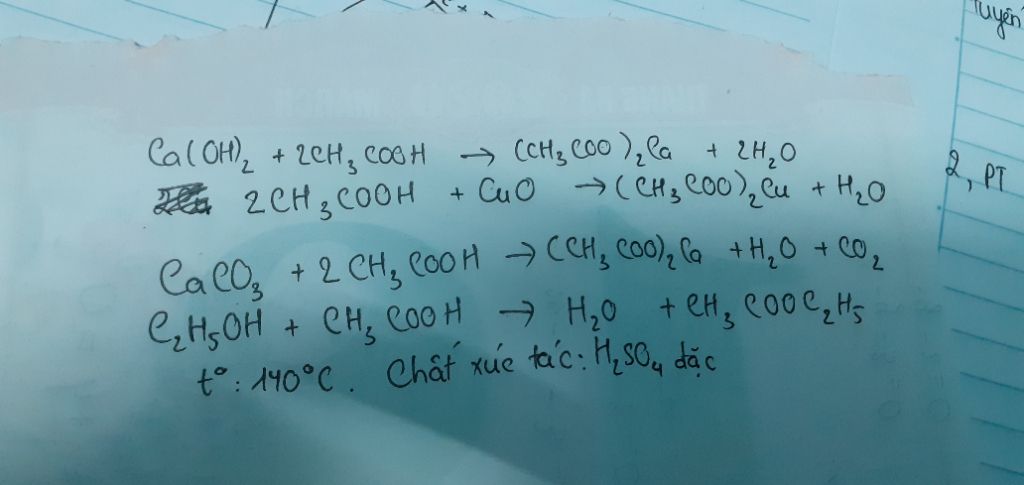 Tuyên
Ca(OH)₂ + 2CH₃COOH → (CH₃COO)₂Ca + 2H₂O
2CH₃COOH + CuO → (CH₃COO)₂Cu + H₂O
2, PT
CaCO₃ + 2CH₃COOH → (CH₃COO)₂Ca + H₂O + CO₂
C₂H₅OH + CH₃COOH → H₂O + CH₃COOC₂H₅
t° : 140°C. Chất xúc tác: H₂SO₄ đặc